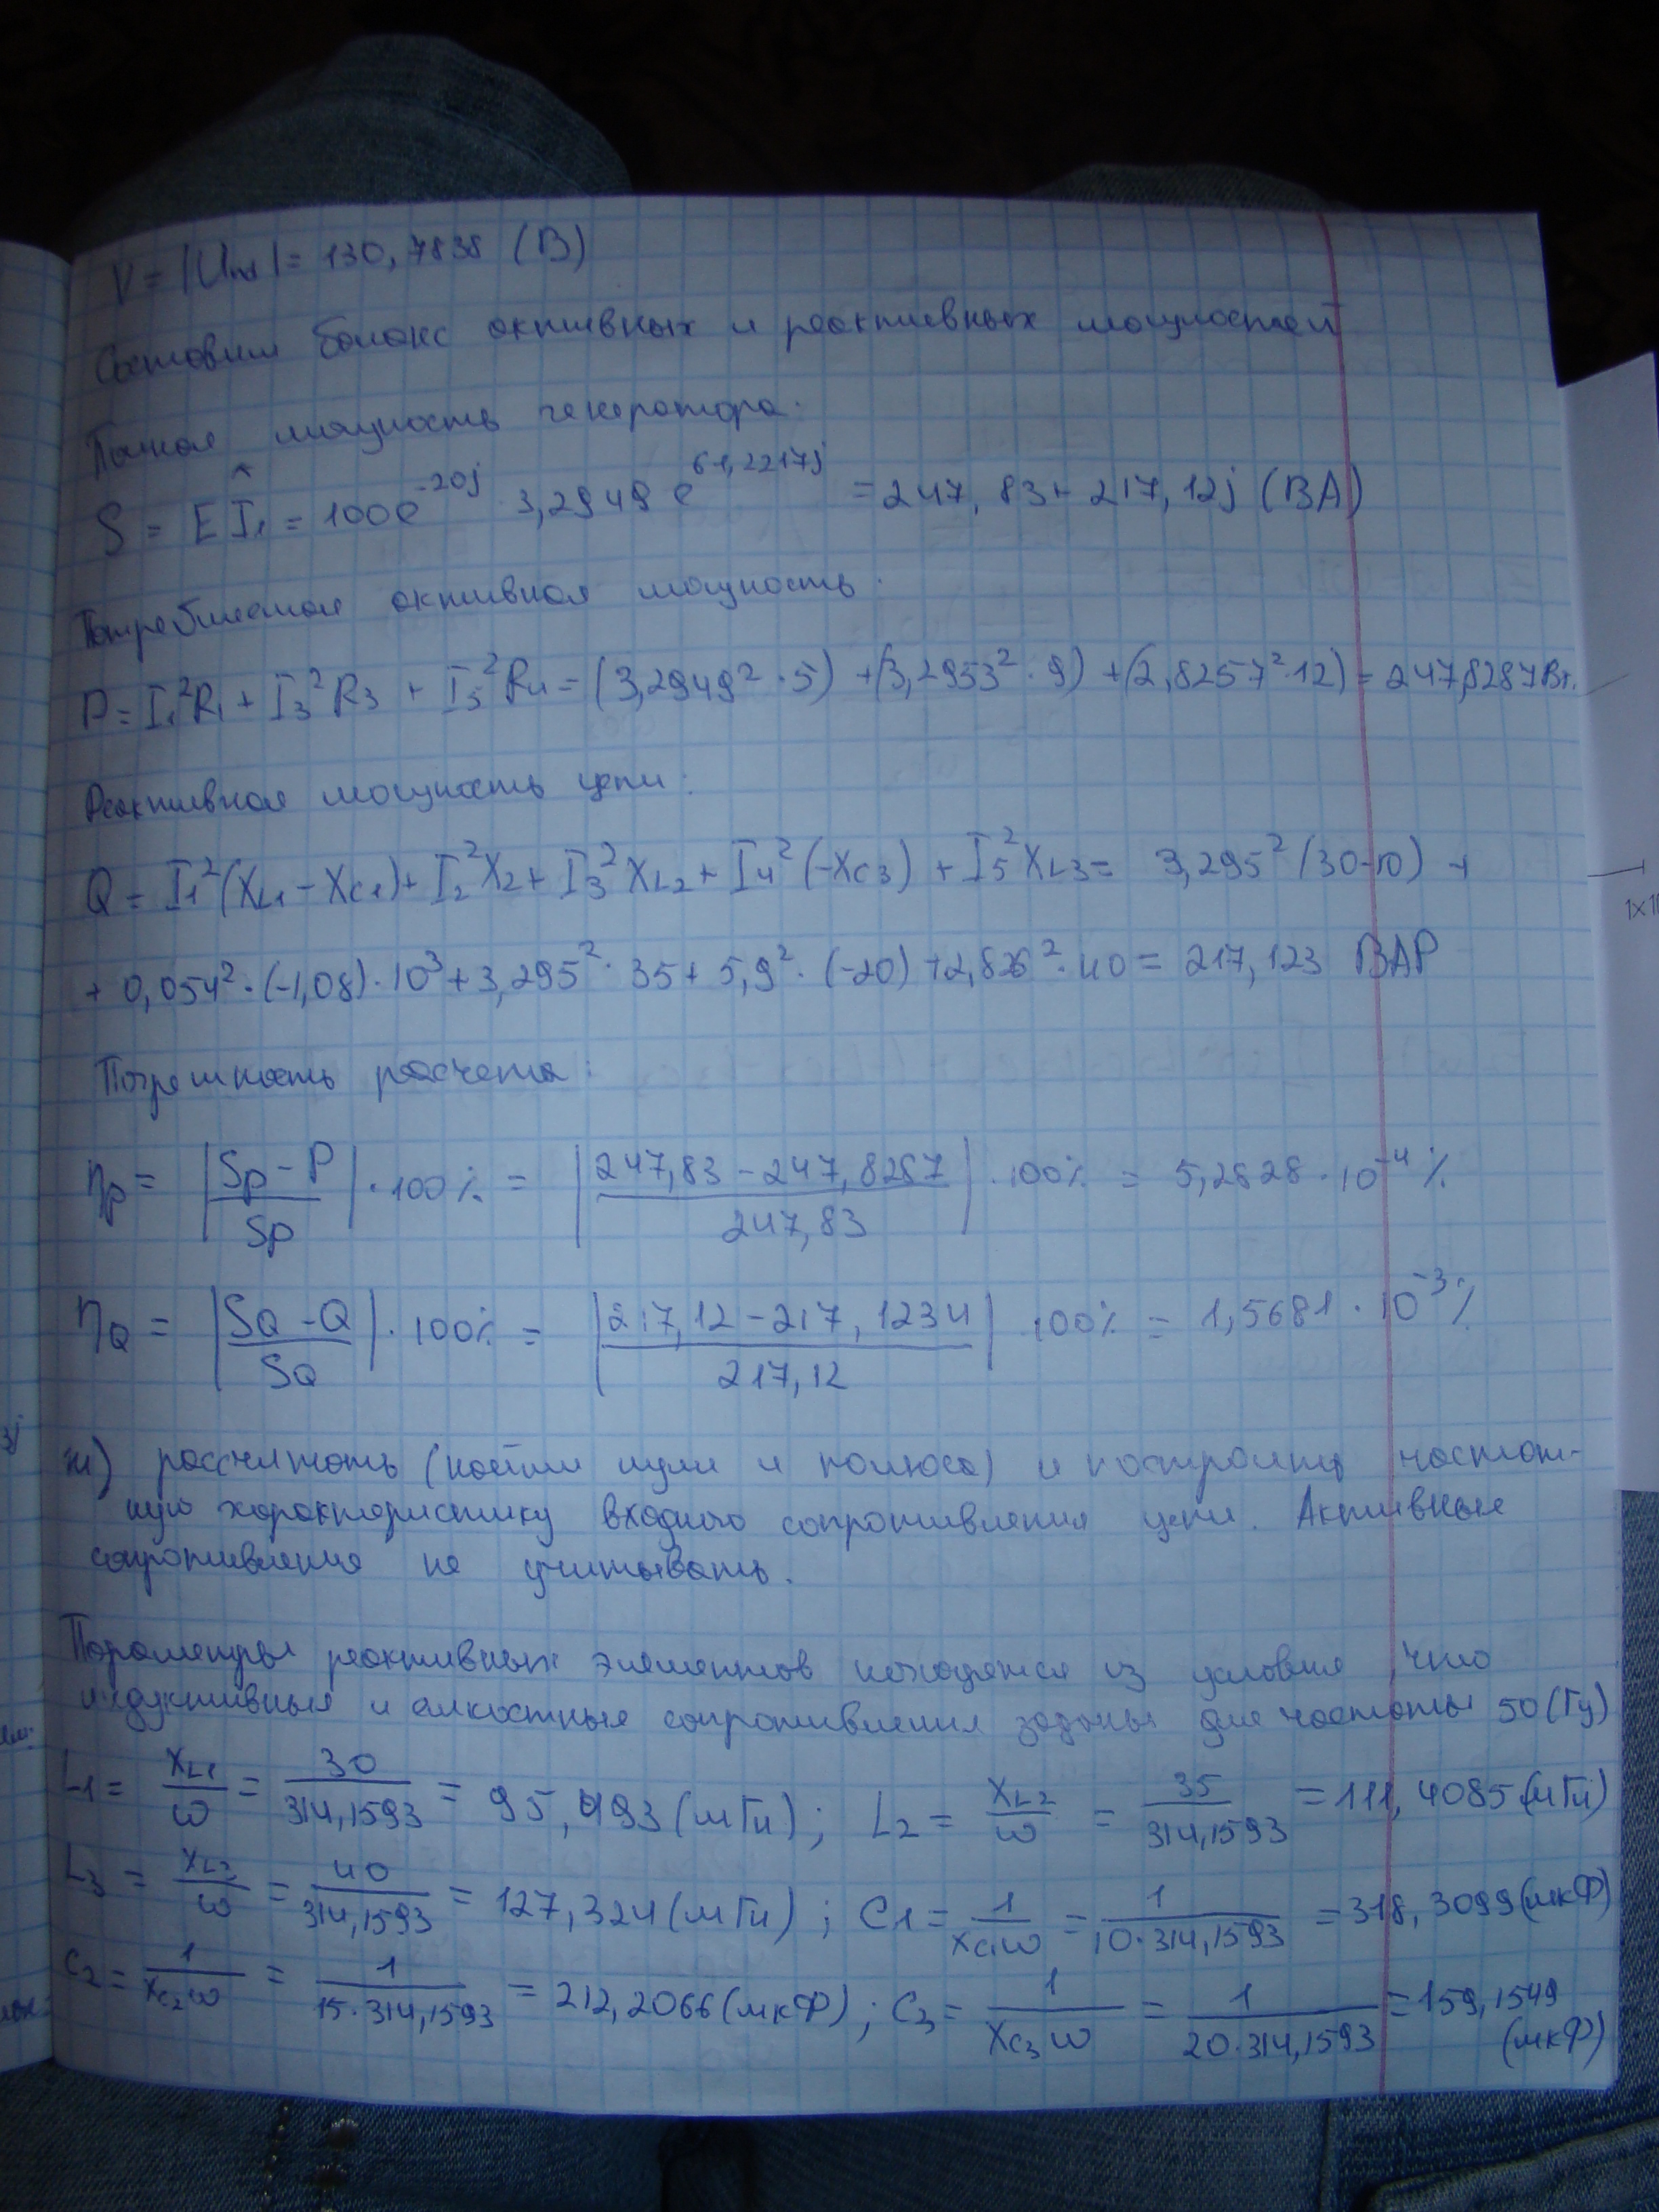 V = |Uнd| = 130,7838 (В)
Составим баланс активных и реактивных мощностей
Полная мощность генератора:
S = E Î₁ = 100e^{-20j} · 3,2949 e^{61,2217j} = 247,83 + 217,12j (ВА)
Потребляемая активная мощность:
P = I₁²R₁ + I₃²R₃ + I₅²R₄ = (3,2949² · 5) + (3,2953² · 9) + (2,8257² · 12) = 247,8287 Вт.
Реактивная мощность цепи:
Q = I₁²(X_{L1} - X_{C1}) + I₂²X₂ + I₃²X_{L2} + I₄²(-X_{C3}) + I₅²X_{L3} = 3,295²(30-10) +
+ 0,054² · (-1,08) · 10³ + 3,295² · 35 + 5,9² · (-20) + 2,826² · 40 = 217,123 ВАР
Погрешность расчета:
η_P = |(S_P - P)/S_P| · 100% = |(247,83 - 247,8287)/247,83| · 100% = 5,2828 · 10⁻⁴ %
η_Q = |(S_Q - Q)/S_Q| · 100% = |(217,12 - 217,1234)/217,12| · 100% = 1,5681 · 10⁻³ %
ж) рассчитать (найти нули и полюса) и построить частот-
ную характеристику входного сопротивления цепи. Активные
сопротивления не учитывать.
Параметры реактивных элементов находятся из условия, что
индуктивные и емкостные сопротивления заданы для частоты 50 (Гц)
L₁ = X_{L1}/ω = 30/314,1593 = 95,493 (мГн); L₂ = X_{L2}/ω = 35/314,1593 = 111,4085 (мГн)
L₃ = X_{L3}/ω = 40/314,1593 = 127,324 (мГн); C₁ = 1/(X_{C1}ω) = 1/(10·314,1593) = 318,3099 (мкФ)
C₂ = 1/(X_{C2}ω) = 1/(15·314,1593) = 212,2066 (мкФ); C₃ = 1/(X_{C3}ω) = 1/(20·314,1593) = 159,1549
(мкФ)